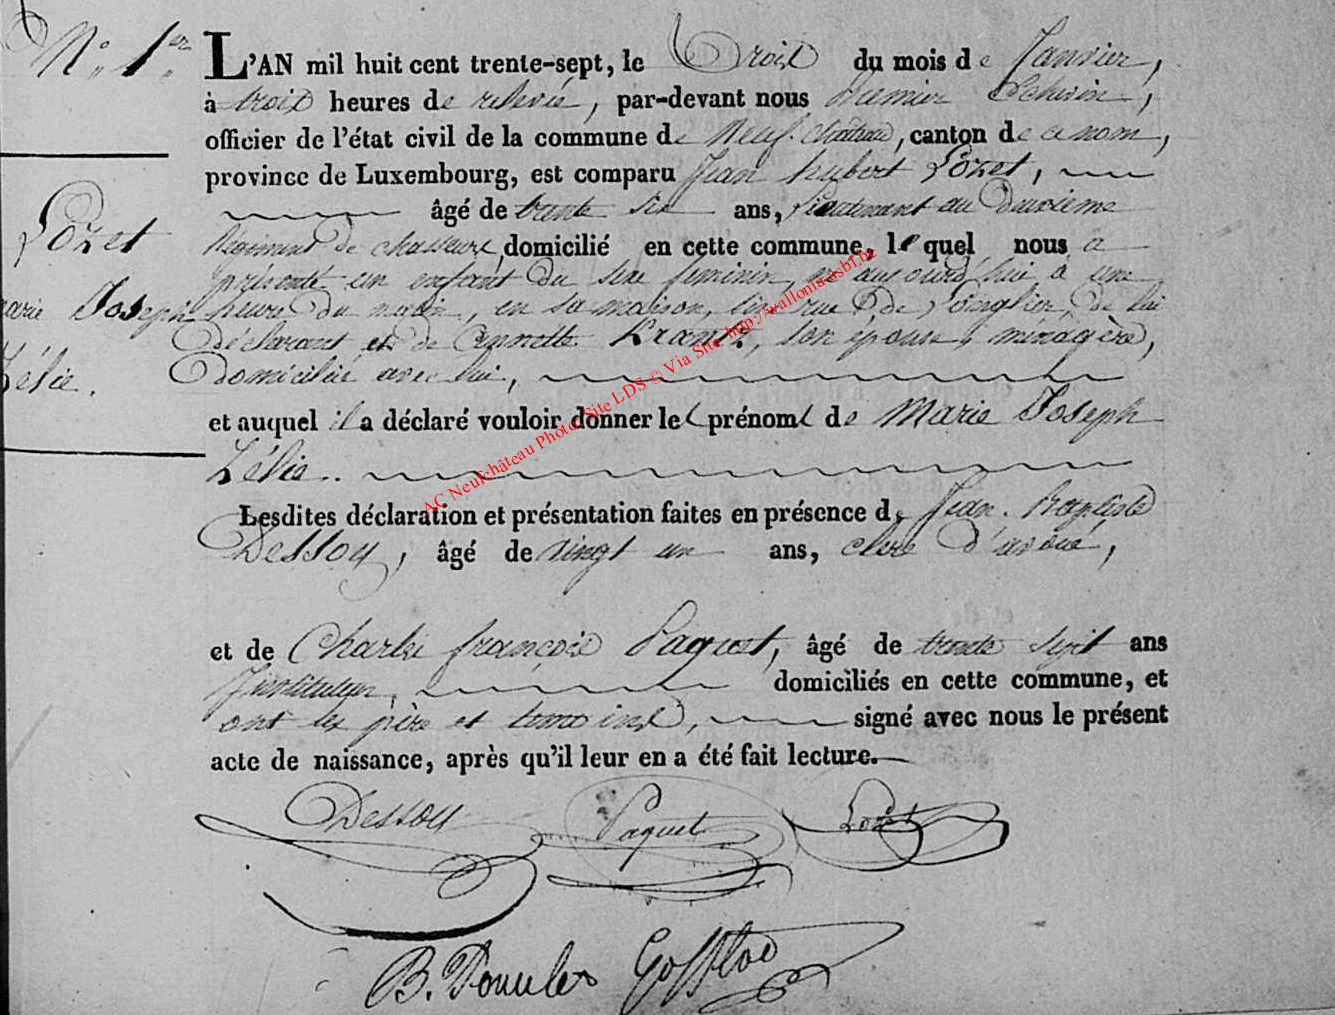 N.° 1.er
L'AN mil huit cent trente-sept, le Trois du mois de Janvier,
à trois heures de relevée, par-devant nous Premier Echevin,
officier de l'état civil de la commune de Neufchâteau, canton de ce nom,
province de Luxembourg, est comparu Jean hubert Lozet,
âgé de trente six ans, Lieutenant au Deuxième
Régiment de chasseurs, domicilié en cette commune, lequel nous a
présenté un enfant du sexe féminin, né aujourd'hui à une
heure du matin, en sa maison, rue de, de lui
déclarant et de Annette Krantz, son épouse, ménagère,
Domiciliée avec lui,
et auquel il a déclaré vouloir donner les prénoms de Marie Joseph
Zélie.
Lozet
Marie Joseph
Zélie.
Lesdites déclaration et présentation faites en présence de Jean Baptiste
Dessoy, âgé de vingt un ans, clerc d'avoué,
et de Charles françois Paquet, âgé de trente sept ans
Instituteur, domiciliés en cette commune, et
ont les père et temoins, signé avec nous le présent
acte de naissance, après qu'il leur en a été fait lecture.
Dessoy Paquet Lozet
B.
AC Neufchâteau Photo Site LDS © Via Site http://wallonia-asbl.be